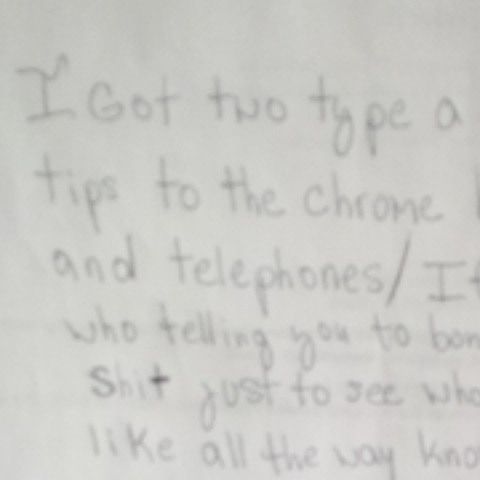 I Got two type a
tips to the chrome
and telephones/
who telling you to
shit just to see
like all the way